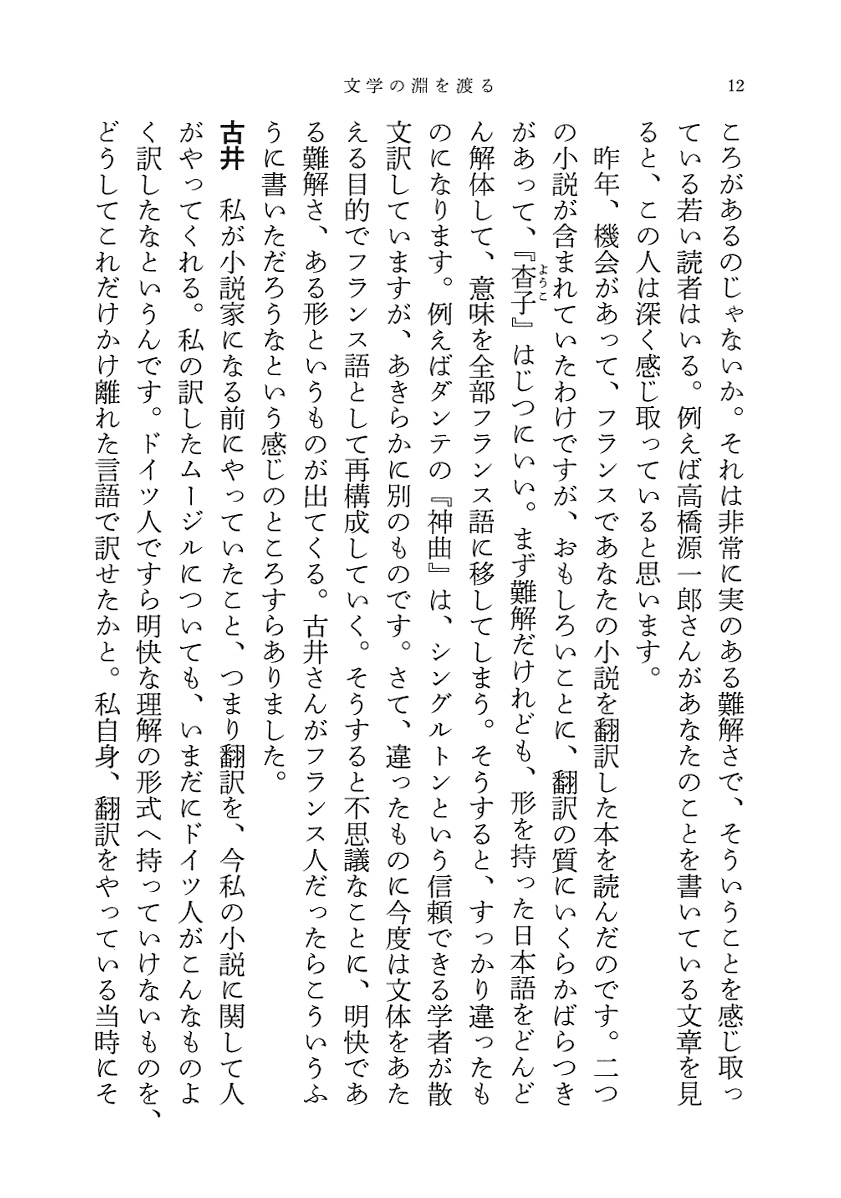 文学の淵を渡る
12
ころがあるのじゃないか。それは非常に実のある難解さで、そういうことを感じ取っ
ている若い読者はいる。例えば高橋源一郎さんがあなたのことを書いている文章を見
ると、この人は深く感じ取っていると思います。
昨年、機会があって、フランスであなたの小説を翻訳した本を読んだのです。二つ
の小説が含まれていたわけですが、おもしろいことに、翻訳の質にいくらかばらつき
があって、『杳子』はじつにいい。まず難解だけれども、形を持った日本語をどんど
ようこ
ん解体して、意味を全部フランス語に移してしまう。そうすると、すっかり違ったも
のになります。例えばダンテの『神曲』は、シングルトンという信頼できる学者が散
文訳していますが、あきらかに別のものです。さて、違ったものに今度は文体をあた
える目的でフランス語として再構成していく。そうすると不思議なことに、明快であ
る難解さ、ある形というものが出てくる。古井さんがフランス人だったらこういうふ
うに書いただろうなという感じのところすらありました。
古井　私が小説家になる前にやっていたこと、つまり翻訳を、今私の小説に関して人
がやってくれる。私の訳したムージルについても、いまだにドイツ人がこんなものよ
く訳したなというんです。ドイツ人ですら明快な理解の形式へ持っていけないものを、
どうしてこれだけかけ離れた言語で訳せたかと。私自身、翻訳をやっている当時にそ